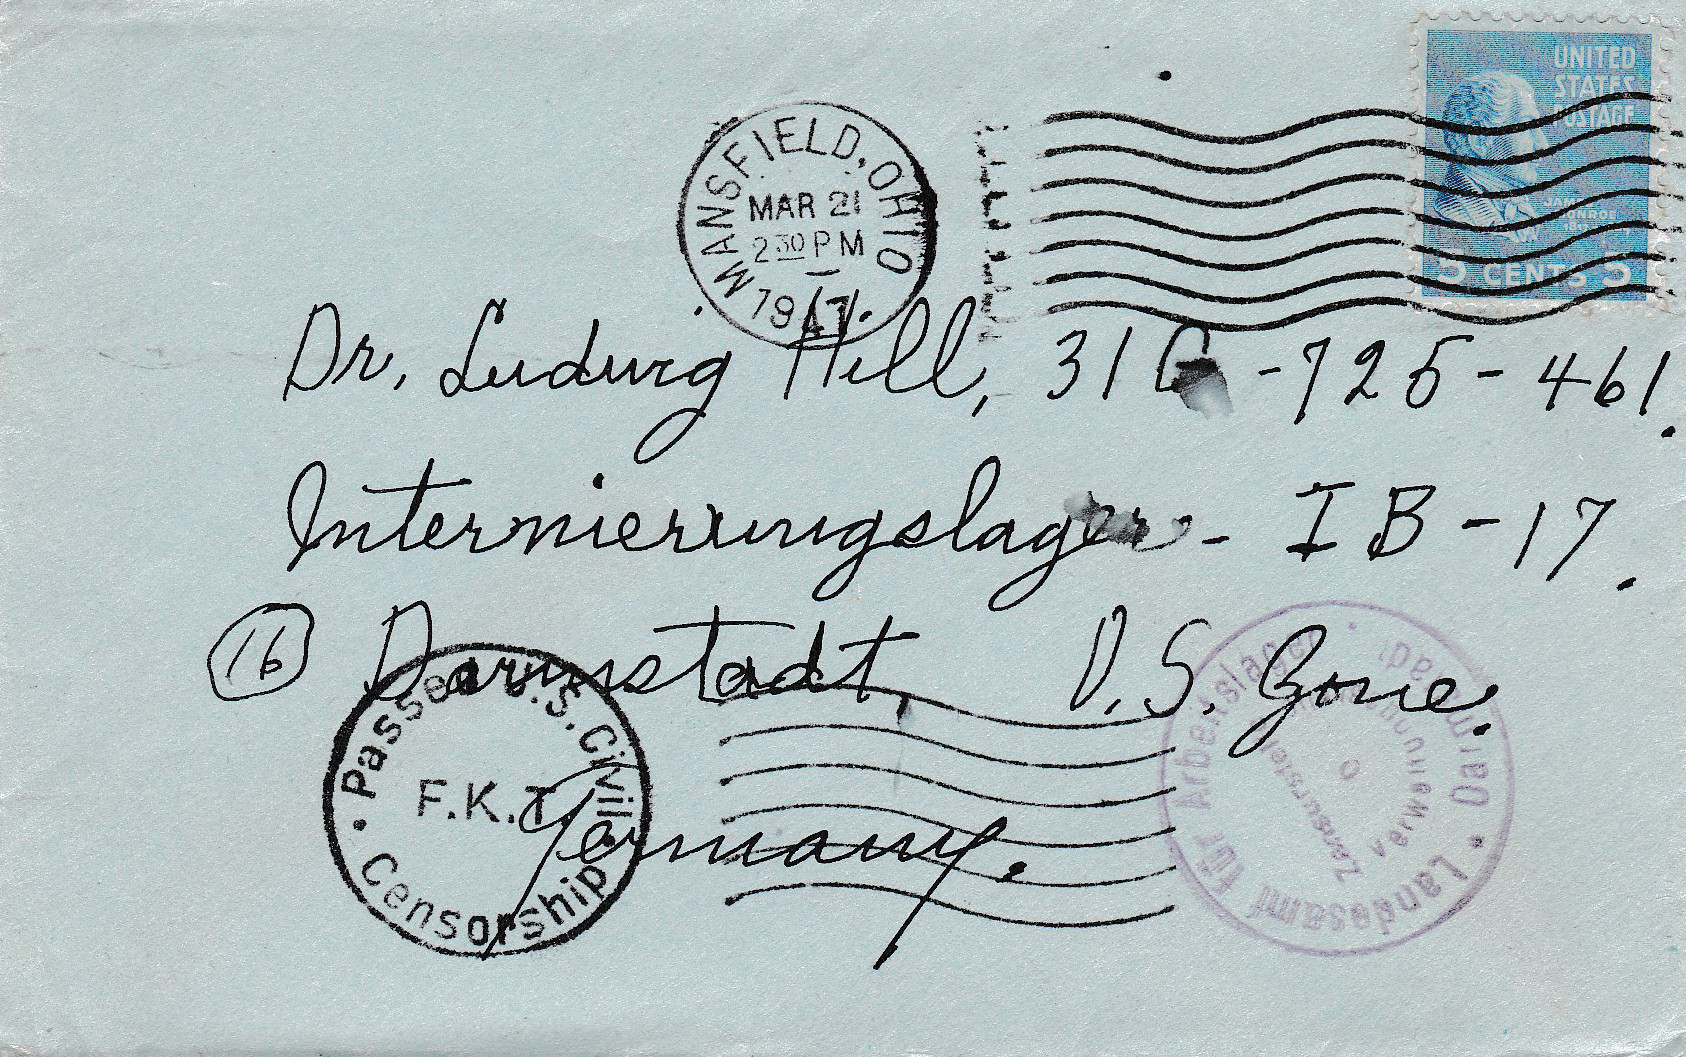 UNITED
STATES
POSTAGE
JAMES
MONROE
5 CENTS 5
MANSFIELD, OHIO
MAR 21
2 30 PM
1947
Dr. Ludwig Hill, 31G-725-461.
Internierungslager - IB-17.
(16) Darmstadt, U.S. Zone.
Germany.
Passed U.S. Civil
F.K.T.
Censorship
Landesamt für Arbeitslager Darmstadt
Zensurstelle
Verwendung